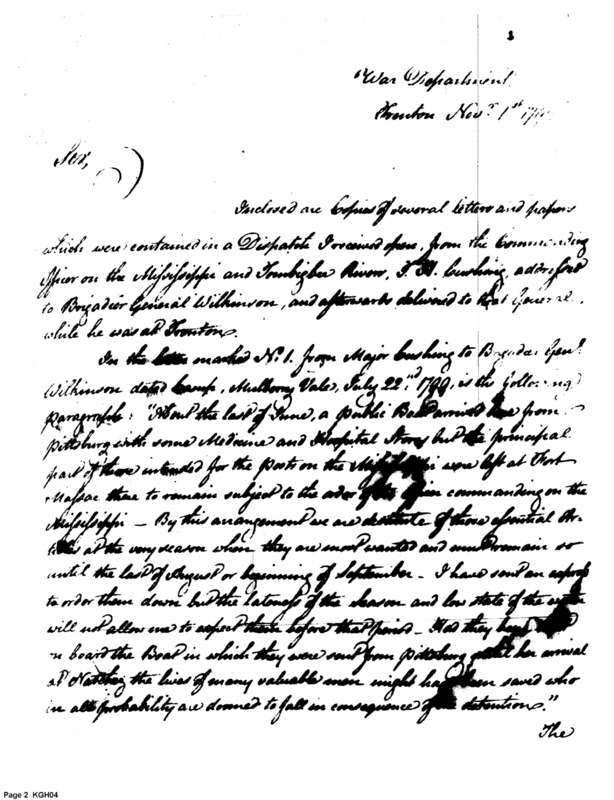 1
War Department
Trenton Novr. 1st 1799
Sir,
Inclosed are Copies of several letters and papers
which were contained in a Dispatch I received open, from the Commanding
Officer on the Mississippi and Tombigbee Rivers, T. H. Cushing, addressed
to Brigadier General Wilkinson, and afterwards delivered to that General,
while he was at Trenton.
In the letter marked No. 1. from Major Cushing to Brigadier Genl.
Wilkinson dated Camp, Mulberry Vale, July 22nd. 1799, is the following
paragraph: "About the last of June, a public Boat arrived here from
Pittsburg with some Medicine and Hospital Stores but the principal
part of those intended for the Posts on the Mississippi were left at Fort
Massac there to remain subject to the order of the Officer commanding on the
Mississippi — By this arrangement we are destitute of those essential Ar-
ticles at the very season when they are most wanted and must remain so
until the last of August or beginning of September — I have sent an express
to order them down but the lateness of the season and low state of the water
will not allow me to expect them before that period — Had they been
on board the Boat in which they were sent from Pittsburg until her arrival
at Natchez the lives of many valuable men might have been saved who
in all probability are doomed to fall in consequence of the detention."
The
Page 2 KGH04